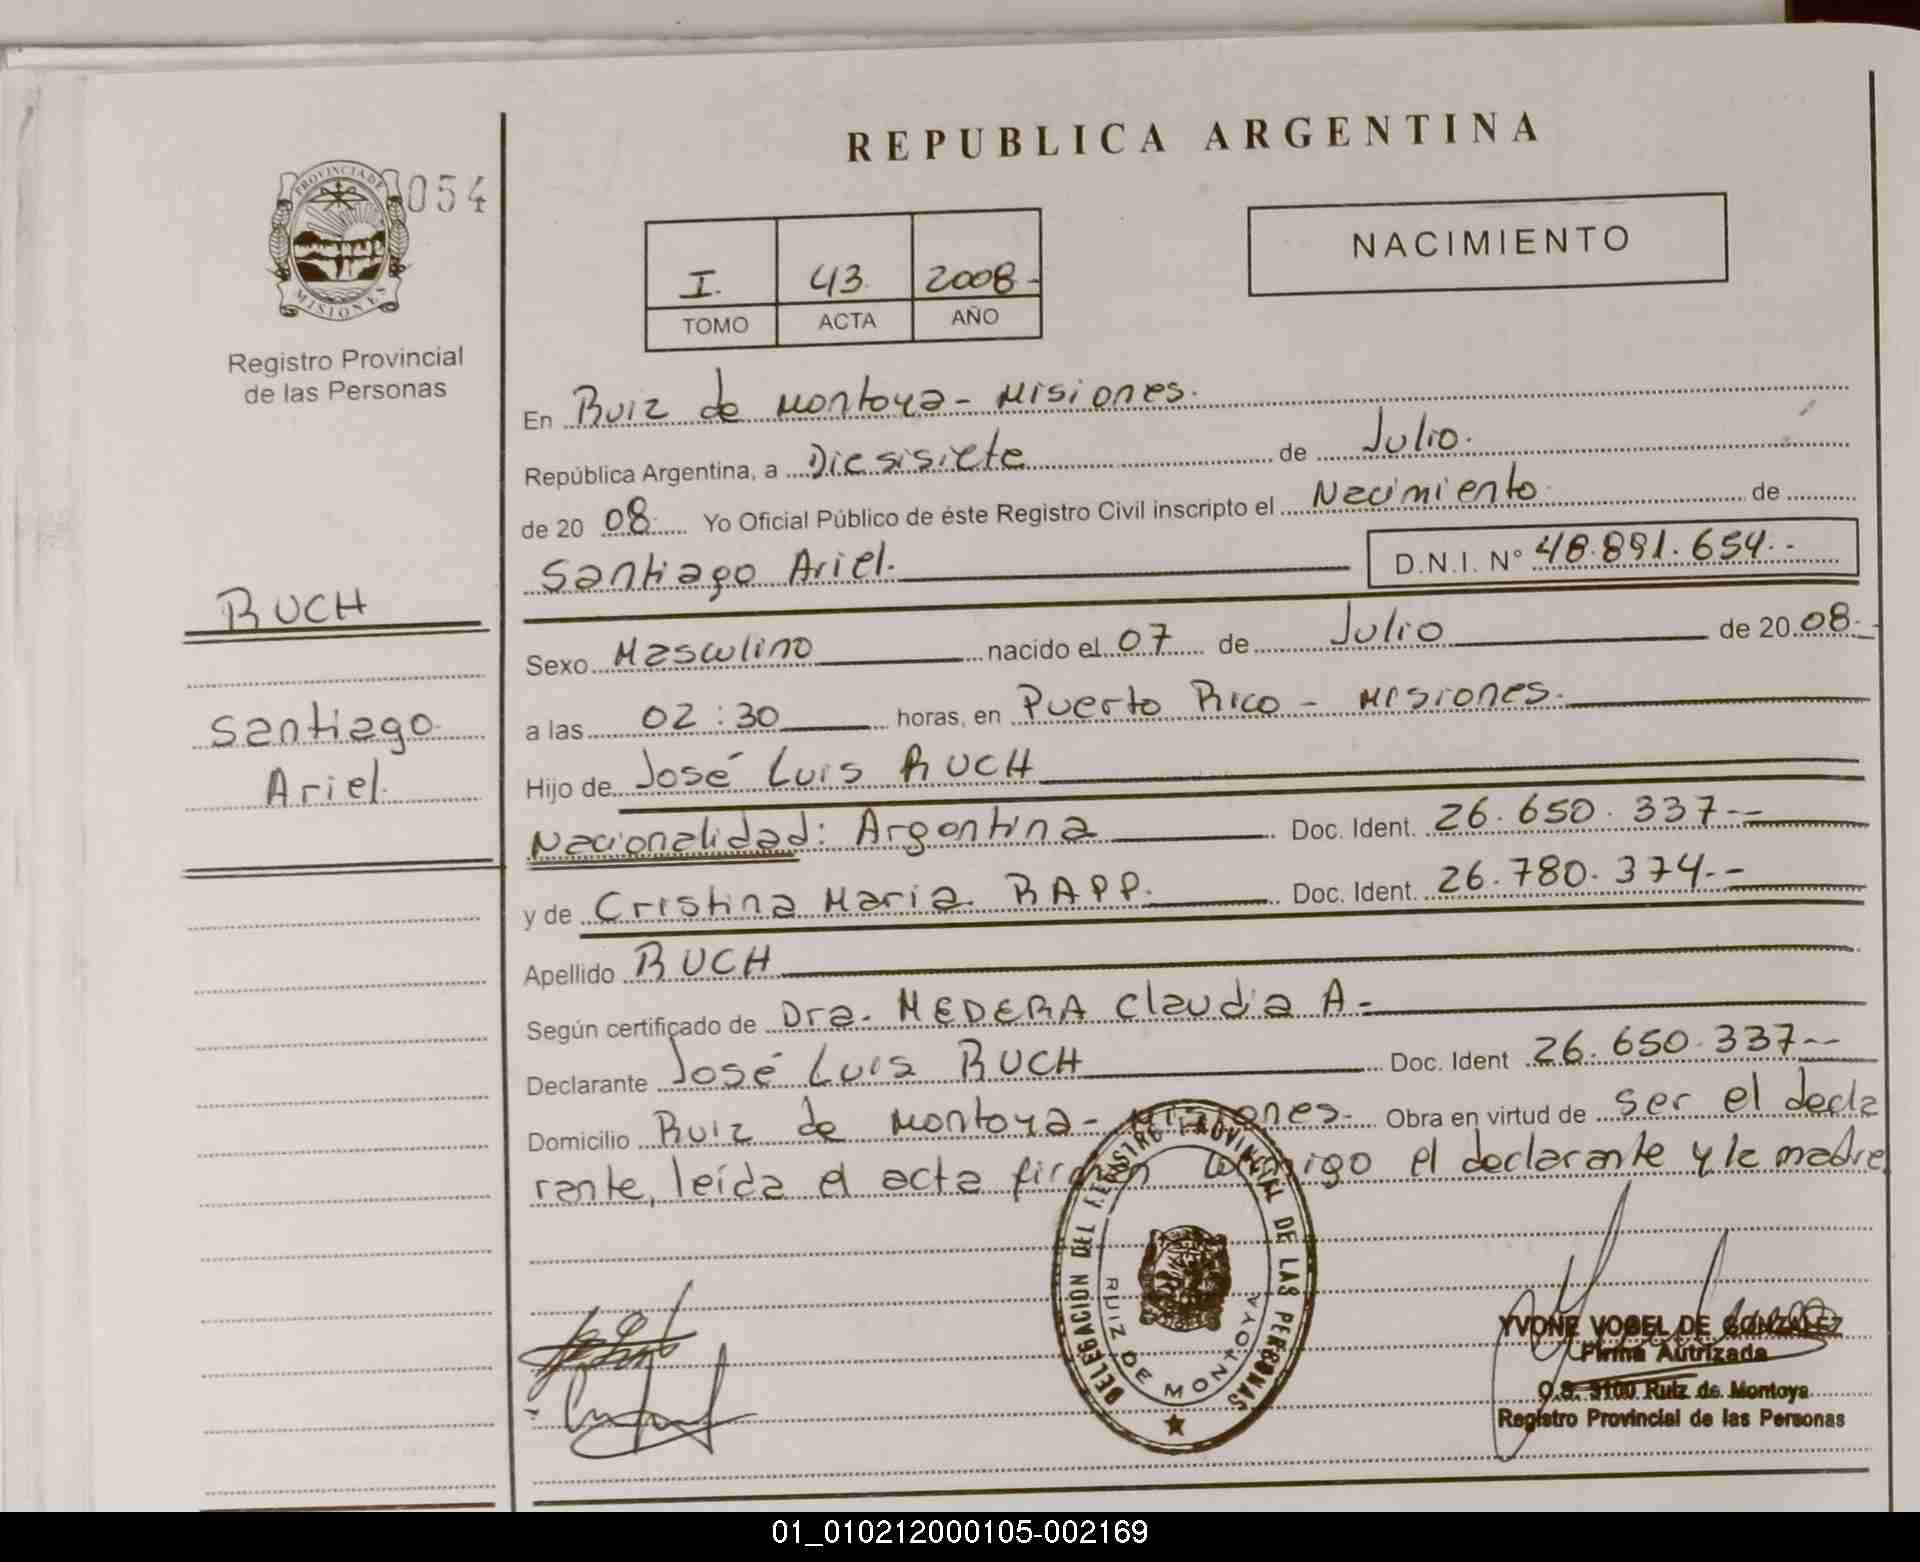 REPUBLICA ARGENTINA
PROVINCIA DE
MISIONES
054
Registro Provincial
de las Personas
I. 43. 2008-
TOMO ACTA AÑO
NACIMIENTO
En Ruiz de Montoya - Misiones.
República Argentina, a Diesisiete de Julio.
de 20 08. Yo Oficial Público de éste Registro Civil inscripto el Nacimiento de
Santiago Ariel.
D.N.I. N° 48.891.654.-
RUCH
Santiago
Ariel.
Sexo Masculino nacido el 07 de Julio de 20 08.-
a las 02:30 horas, en Puerto Rico - Misiones.
Hijo de José Luis RUCH
Nacionalidad: Argentina Doc. Ident. 26.650.337.-
y de Cristina Maria RAPP. Doc. Ident. 26.780.374.-
Apellido RUCH
Según certificado de Dra. MEDERA Claudia A.-
Declarante José Luis RUCH Doc. Ident 26.650.337.-
Domicilio Ruiz de Montoya - Misiones. Obra en virtud de ser el decla
rante, leída el acta firman conmigo el declarante y la madre
DELEGACION DEL REGISTRO PROVINCIAL DE LAS PERSONAS
RUIZ DE MONTOYA
YVONE VOGEL DE GONZALEZ
Firma Autrizada
O.S. 3100 Ruiz de Montoya
Registro Provincial de las Personas
01_010212000105-002169